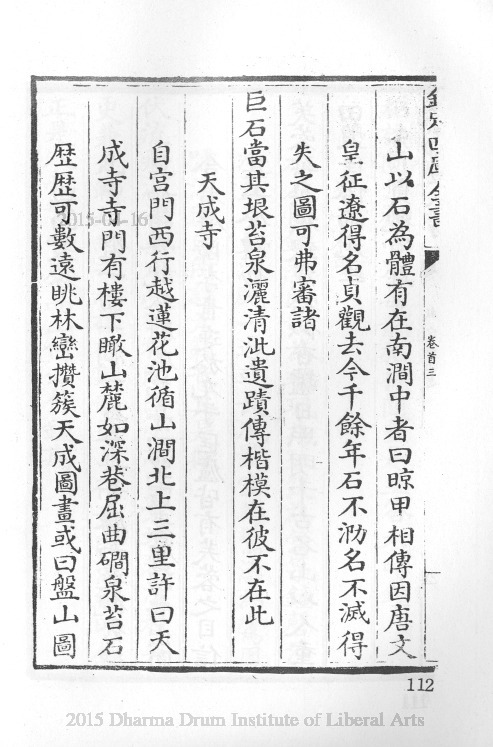 欽定四庫全書
卷首三
山以石為體有在南澗中者曰晾甲相傳因唐文
皇征遼得名貞觀去今千餘年石不泐名不滅得
失之圖可弗審諸
巨石當其垠苔泉灑清泚遺蹟傳楷模在彼不在此
天成寺
自宫門西行越蓮花池循山澗北上三里許曰天
成寺寺門有樓下瞰山麓如深巷屈曲磵泉苔石
歴歴可數遠眺林巒攢簇天成圖畫或曰盤山圖
112
2015-01-16
2015 Dharma Drum Institute of Liberal Arts